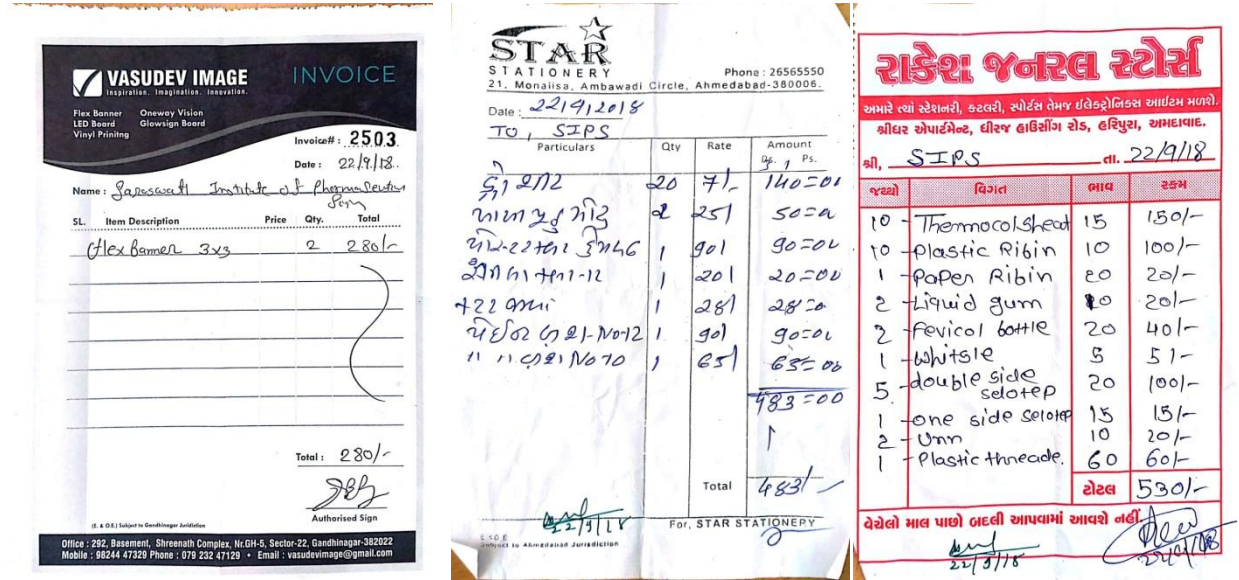 VASUDEV IMAGE
Inspiration. Imagination. Innovation.
INVOICE
Flex Banner Oneway Vision
LED Board Glowsign Board
Vinyl Prinitng
Invoice# : 2503
Date : 22/9/18.
Name : Saraswati Institute of Pharmaceutical
SL. Item Description Price Qty. Total
Flex Banner 3x3 2 280/-
Total : 280/-
Authorised Sign
(E. & O.E.) Subject to Gandhinagar Juridiction
Office : 292, Basement, Shreenath Complex, Nr.GH-5, Sector-22, Gandhinagar-382022
Mobile : 98244 47329 Phone : 079 232 47129 • Email : vasudevimage@gmail.com
STAR
STATIONERY
Phone : 26565550
21, Monalisa, Ambawadi Circle, Ahmedabad-380006.
Date : 22/9/2018
TO, SIPS
Particulars Qty Rate Amount
Rs. Ps.
20 7/- 140=00
2 25/ 50=00
1 90/ 90=00
1 20/ 20=00
1 28/ 28=00
-No-12 1 90/ 90=00
" " No 10 1 65/ 65=00
483=00
Total 483/-
22/9/18
For, STAR STATIONERY
E.&O.E
Subject to Ahmedabad Jurisdiction
રાકેશ જનરલ સ્ટોર્સ
અમારે ત્યાં સ્ટેશનરી, કટલરી, સ્પોર્ટસ તેમજ ઈલેક્ટ્રોનિક્સ આઈટમ મળશે.
શ્રીધર એપાર્ટમેન્ટ, ધીરજ હાઉસીંગ રોડ, હરિપુરા, અમદાવાદ.
શ્રી, SIPS તા. 22/9/18
જથ્થો વિગત ભાવ રકમ
10 - Thermocol sheat 15 150/-
10 - Plastic Ribin 10 100/-
1 - Paper Ribin 20 20/-
2 - Liquid gum 10 20/-
2 - fevicol bottle 20 40/-
1 - Whitsle 5 5/-
5 - double side selotep 20 100/-
1 - one side selotep 15 15/-
2 - Unn 10 20/-
1 - Plastic threade. 60 60/-
ટોટલ 530/-
વેચેલો માલ પાછો બદલી આપવામાં આવશે નહીં.
22/9/18
22/9/18